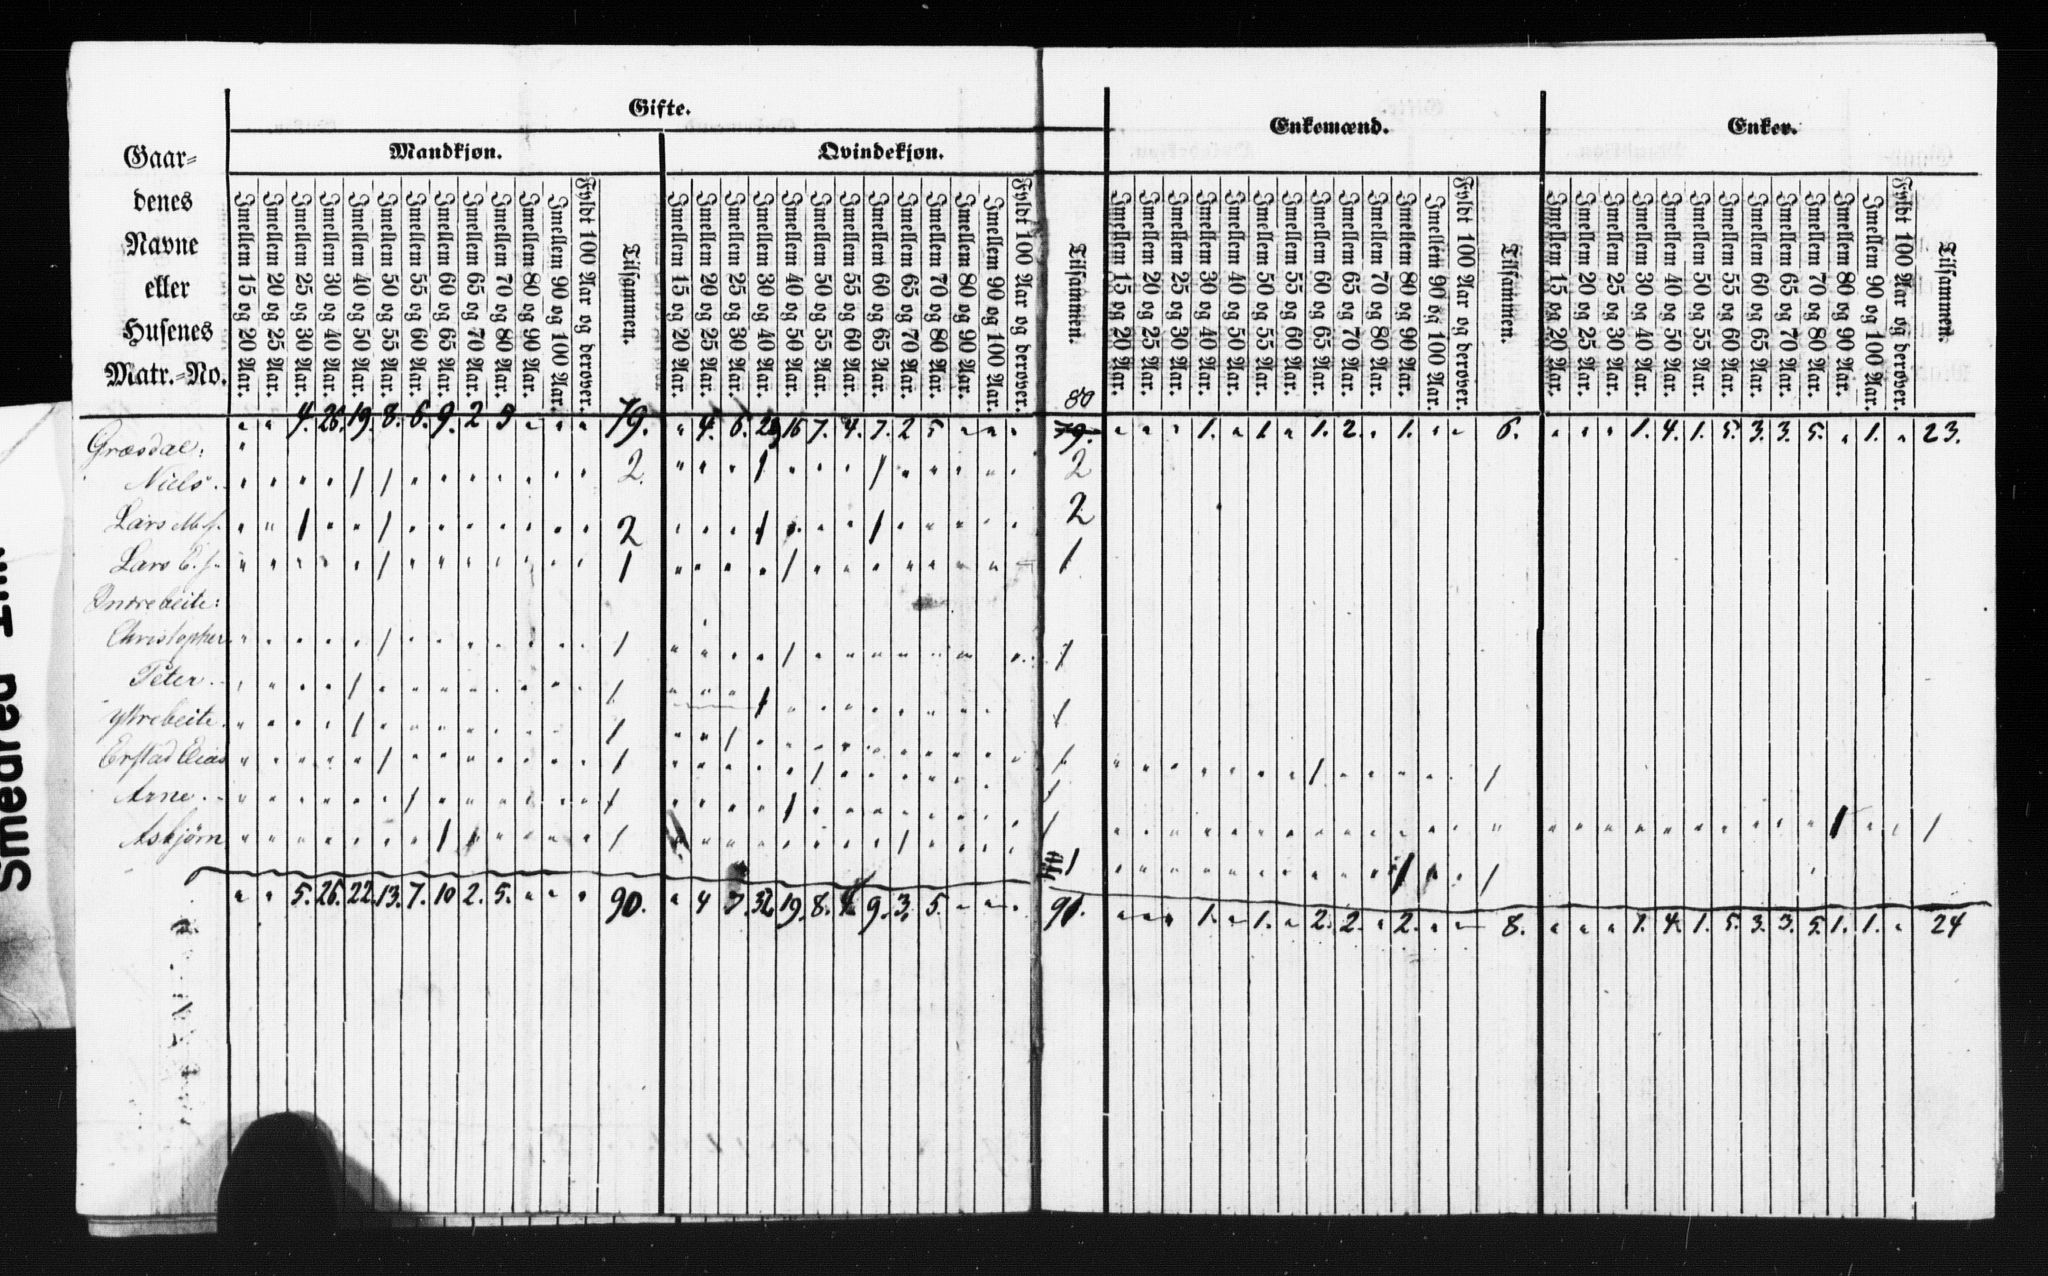 Gifte.
Enkemænd.
Enker.
Mandkjøn.
Qvindekjøn.
Gaar-
denes
Navne
eller
Husenes
Matr.-No.
Imellem 15 og 20 Aar.
Imellem 20 og 25 Aar.
Imellem 25 og 30 Aar.
Imellem 30 og 40 Aar.
Imellem 40 og 50 Aar.
Imellem 50 og 55 Aar.
Imellem 55 og 60 Aar.
Imellem 60 og 65 Aar.
Imellem 65 og 70 Aar.
Imellem 70 og 80 Aar.
Imellem 80 og 90 Aar.
Imellem 90 og 100 Aar.
Fyldt 100 Aar og derover.
Tilsammen.
Imellem 15 og 20 Aar.
Imellem 20 og 25 Aar.
Imellem 25 og 30 Aar.
Imellem 30 og 40 Aar.
Imellem 40 og 50 Aar.
Imellem 50 og 55 Aar.
Imellem 55 og 60 Aar.
Imellem 60 og 65 Aar.
Imellem 65 og 70 Aar.
Imellem 70 og 80 Aar.
Imellem 80 og 90 Aar.
Imellem 90 og 100 Aar.
Fyldt 100 Aar og derover.
Tilsammen.
Imellem 15 og 20 Aar.
Imellem 20 og 25 Aar.
Imellem 25 og 30 Aar.
Imellem 30 og 40 Aar.
Imellem 40 og 50 Aar.
Imellem 50 og 55 Aar.
Imellem 55 og 60 Aar.
Imellem 60 og 65 Aar.
Imellem 65 og 70 Aar.
Imellem 70 og 80 Aar.
Imellem 80 og 90 Aar.
Imellem 90 og 100 Aar.
Fyldt 100 Aar og derover.
Tilsammen.
Imellem 15 og 20 Aar.
Imellem 20 og 25 Aar.
Imellem 25 og 30 Aar.
Imellem 30 og 40 Aar.
Imellem 40 og 50 Aar.
Imellem 50 og 55 Aar.
Imellem 55 og 60 Aar.
Imellem 60 og 65 Aar.
Imellem 65 og 70 Aar.
Imellem 70 og 80 Aar.
Imellem 80 og 90 Aar.
Imellem 90 og 100 Aar.
Fyldt 100 Aar og derover.
Tilsammen.
80
" " 4. 26. 19. 8. 6. 9. 2 5 " " " 79. " 4. 6. 16 7. 4. 7. 2 5 " " " 79. " " " 1. " 1. " 1. 2. " 1. " " 6. " " " 1. 4. 1. 5. 3. 3. 5. " 1. " 23.
Græsdal:
Niels 1 1 2. 1 1 2
Lars 1 1 2 1 1 2
Lars 1 1 1 1
Indrebeite:
Christopher 1 1 1 1
Peter 1 1 1 1
Yttrebeite 1 1 1 1
Erstad Elias 1 1 1 1 1 1
Arne 1 1 1 1
Asbjørn 1 1 1 1 1 1
1 1 1
" " 5. 26. 22. 13. 7. 10 2. 5. " " " 90. " 4 7. 32 19. 8. 4. 9. 3. 5. " " " 91. " " " 1. " 1. " 2. 2. " 2. " " 8. " " " 1. 4. 1. 5. 3. 3. 5. 1. 1. " 24